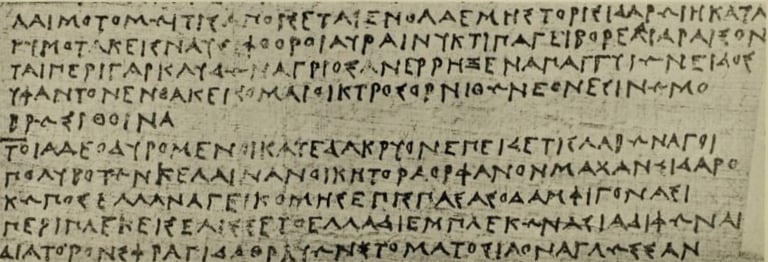 ΛΑΙΜΟΤΟΜΩΙΤΙΣΑΠΟΙΣΕΤΑΙΕΝΘΑΔΕΜΗΣΤΟΡΙΣΙΔΑΡΩΙΗΚΑΤΑ
ΚΥΜΟΤΑΚΕΙΣΝΑΥΣΙΦΘΟΡΟΙΑΥΡΑΙΝΥΚΤΙΠΑΓΕΙΒΟΡΕΑΙΔΡΑΙΣΟΝ
ΤΑΙΠΕΡΙΓΑΡΚΛΥΔΩΝΑΓΡΙΟΣΑΝΕΡΡΗΞΕΝΑΠΑΓΓΥΙΩΝΕΙΔΟΣ
ΥΦΑΝΤΟΝΕΝΘΑΚΕΙΣΟΜΑΙΟΙΚΤΡΟΣΟΡΝΙΘΩΝΕΘΝΕΣΙΝΩΜΟ
ΒΡΩΣΙΘΟΙΝΑ
ΤΟΙΑΔΕΟΔΥΡΟΜΕΝΟΙΚΑΤΕΔΑΚΡΥΟΝΕΠΕΙΔΕΤΙΣΛΑΒΩΝΑΓΟΙ
ΠΟΛΥΒΟΤΩΝΚΕΛΑΙΝΑΝΟΙΚΗΤΟΡΑΟΡΦΑΝΟΝΜΑΧΑΝΣΙΔΑΡΟ
ΚΩΠΟΣΕΛΛΑΝΑΓΕΙΚΟΜΗΣΕΠΙΣΠΑΣΑΣΟΔΑΜΦΙΓΟΝΑΣΙ
ΠΕΡΙΠΛΕΚΕΙΣΕΛΙΣΣΕΤΟΕΛΛΑΔΙΕΜΠΛΕΚΩΝΑΣΙΑΔΙΦΩΝΑΙ
ΔΙΑΤΟΡΟΝΣΦΡΑΓΙΔΑΘΡΑΥΩΝΣΤΟΜΑΤΟΣΙΑΟΝΑΓΛΩΣΣΑΝ